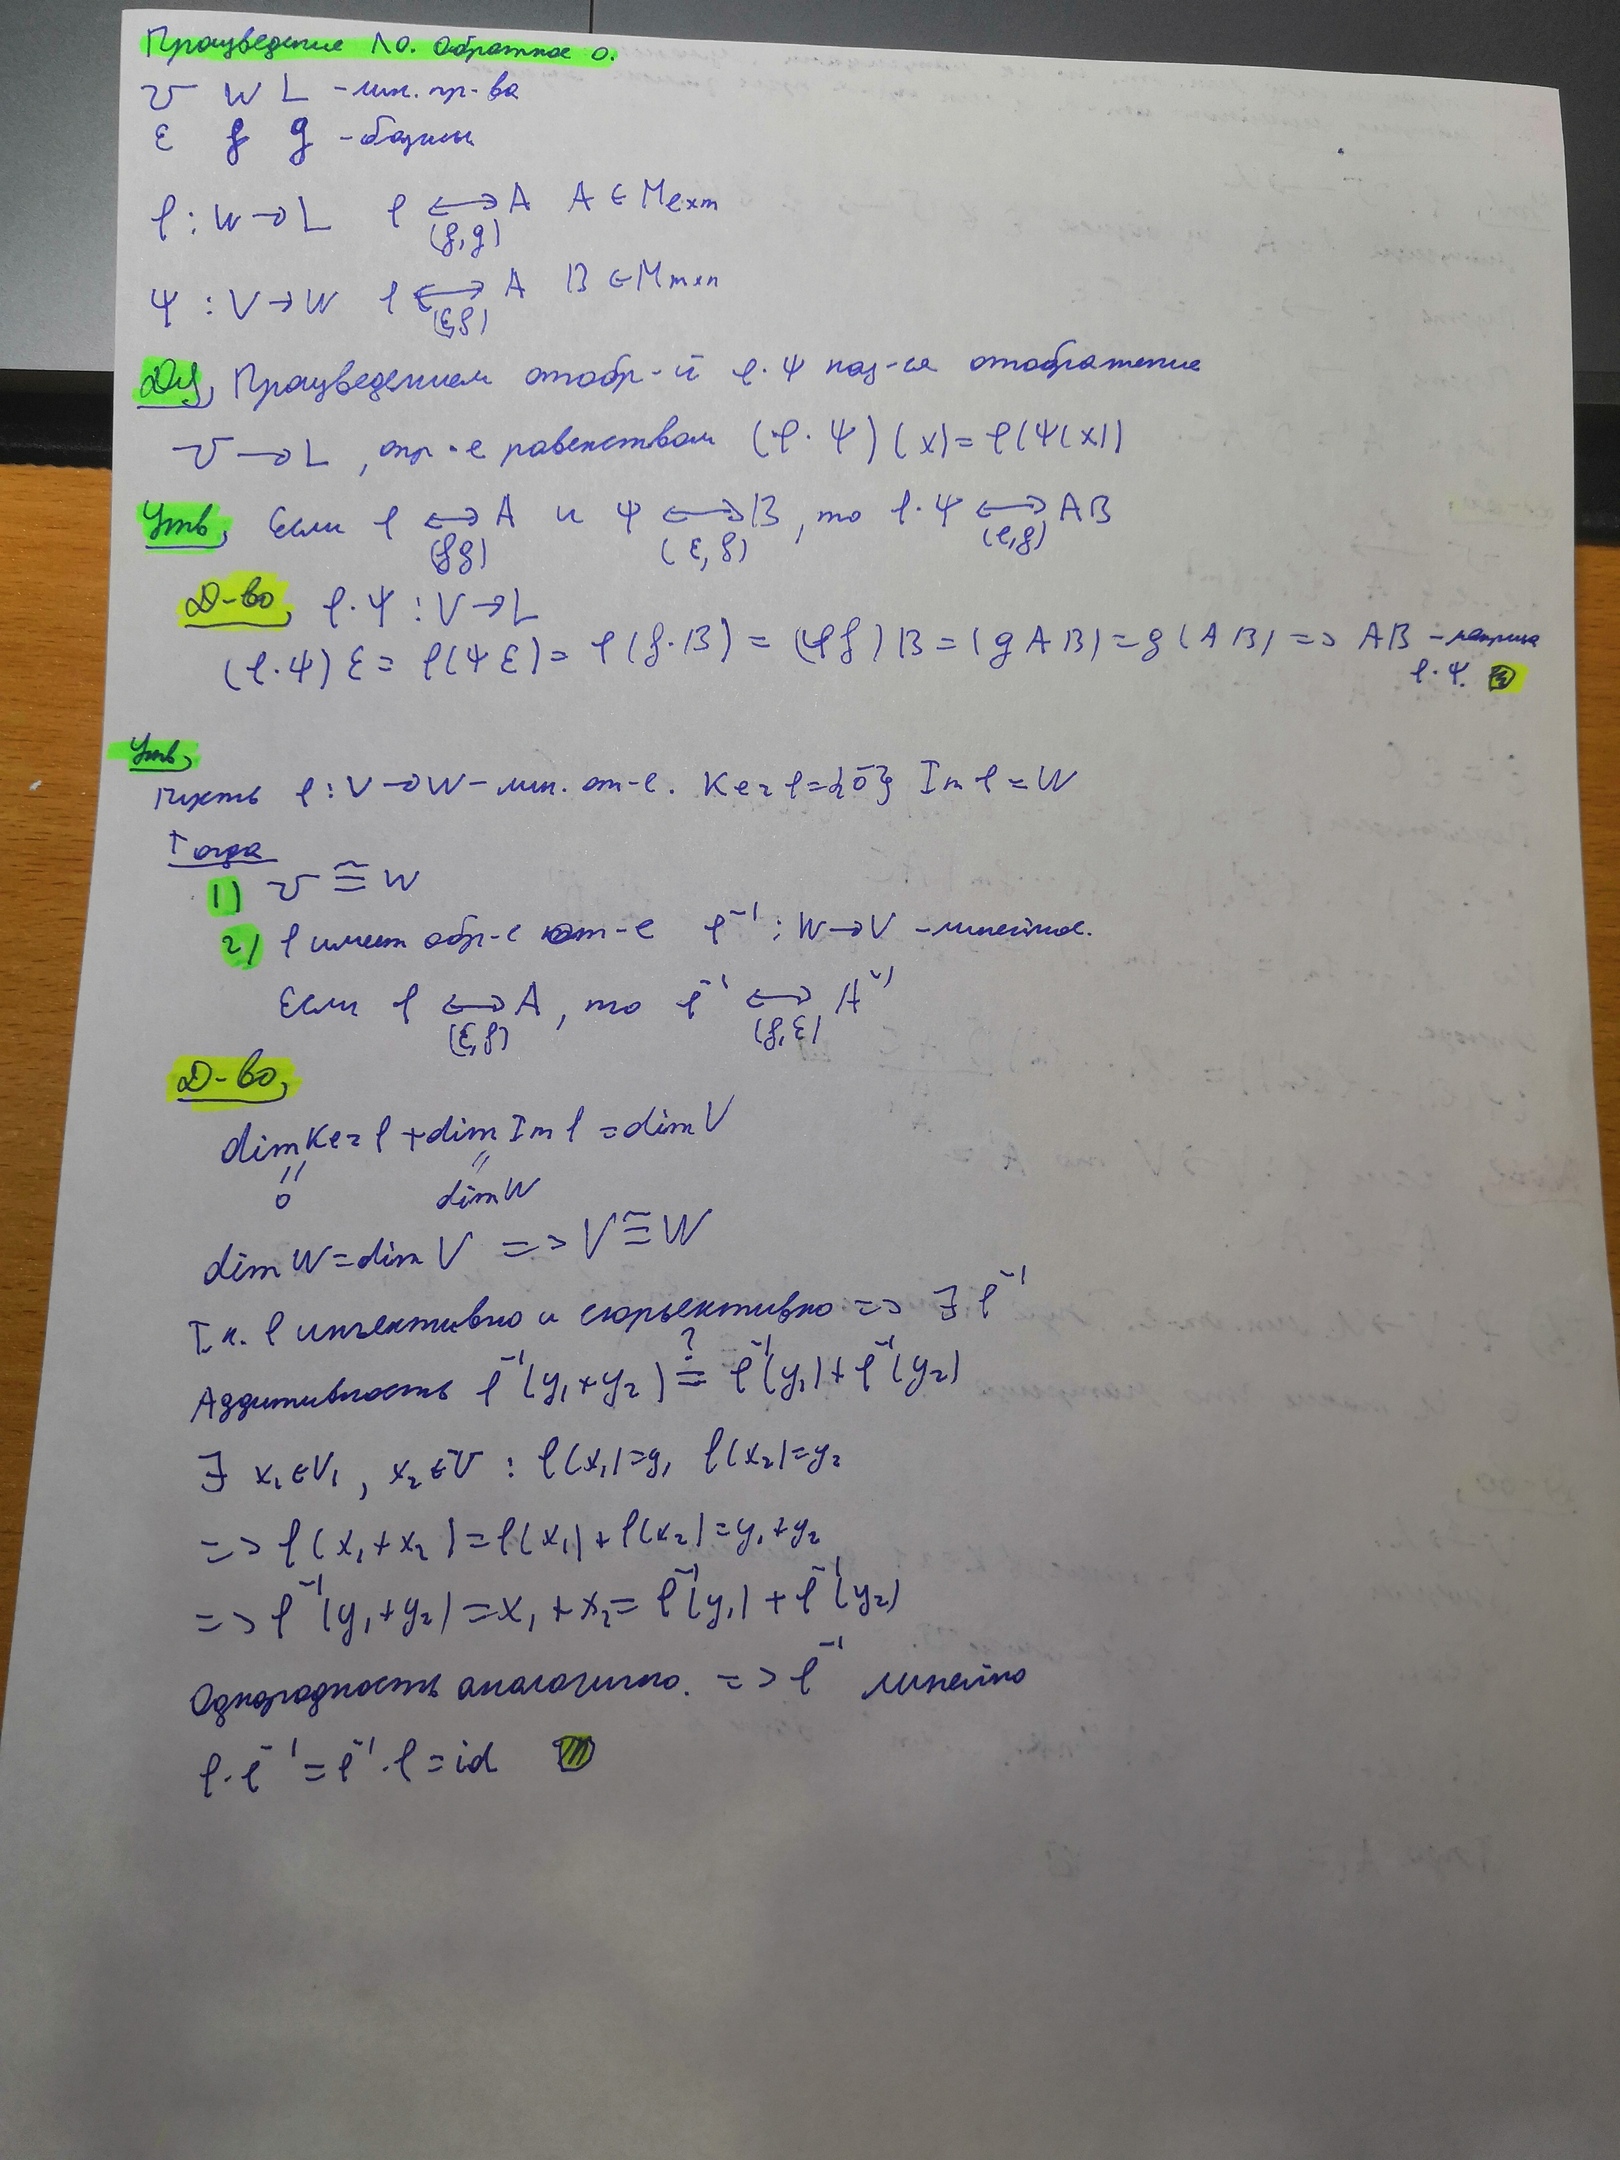 Произведение ЛО. Обратное о.
V W L - лин. пр-ва
ε f g - базисы
φ : W → L φ ⟷ A A ∈ Mℓxm
(f, g)
Ψ : V → W φ ⟷ A B ∈ Mmxn
(ε, f)
Опр, Произведением отобр-й φ·Ψ наз-ся отображение
V → L , опр-е равенством (φ·Ψ)(x) = φ(Ψ(x))
Утв, Если φ ⟷ A и Ψ ⟷ B, то φ·Ψ ⟷ AB
(f g) (ε, f) (ε, g)
Д-во, φ·Ψ : V → L
(φ·Ψ) ε = φ(Ψ ε) = φ(f·B) = (φf) B = (g A B) = g (A B) => AB - матрица
φ·Ψ.
Утв,
Пусть φ : V → W - лин. от-е. Ker φ = {0̄} Im φ = W
Тогда
1) V ≅ W
2) φ имеет обр-е от-е φ⁻¹ : W → V - линейное.
Если φ ⟷ A, то φ⁻¹ ⟷ A⁻¹
(ε, f) (f, ε)
Д-во,
dim Ker φ + dim Im φ = dim V
|| ||
0 dim W
dim W = dim V => V ≅ W
Т.к. φ инъективно и сюръективно => ∃ φ⁻¹
Аддитивность φ⁻¹(y₁ + y₂) ≟ φ⁻¹(y₁) + φ⁻¹(y₂)
∃ x₁ ∈ V₁, x₂ ∈ V : φ(x₁) = y₁ φ(x₂) = y₂
=> φ(x₁ + x₂) = φ(x₁) + φ(x₂) = y₁ + y₂
=> φ⁻¹(y₁ + y₂) = x₁ + x₂ = φ⁻¹(y₁) + φ⁻¹(y₂)
Однородность аналогично. => φ⁻¹ линейно
φ·φ⁻¹ = φ⁻¹·φ = id